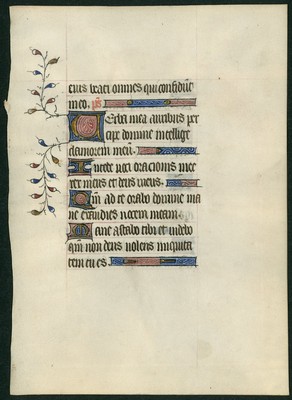 eius beati omnes qui confidūt
in eo. ps
Verba mea auribus per
cipe domine intellige
clamorem meū.
Intende uoci orationis mee
rex meus et deus meus.
Qm̄ ad te orabo domine ma
ne exaudies uocem meam.
Mane astabo tibi et uidebo
qm̄ non deus uolens iniquita
tem tu es.